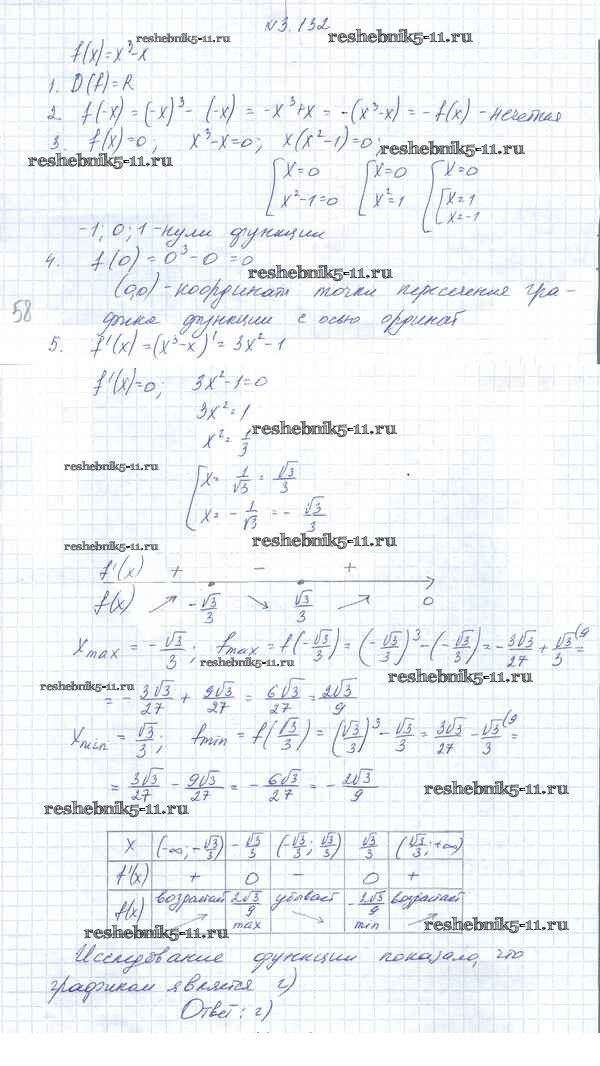 №3.132
reshebnik5-11.ru reshebnik5-11.ru
f(x)=x³-x
1. D(f)=R
2. f(-x)=(-x)³-(-x)=-x³+x=-(x³-x)=-f(x) - нечетная
3. f(x)=0; x³-x=0; x(x²-1)=0;
reshebnik5-11.ru reshebnik5-11.ru
[x=0 [x=0 [x=0
x²-1=0 x²=1 [x=1
x=-1
-1; 0; 1 - нули функции
4. f(0)=0³-0=0
reshebnik5-11.ru
(0,0) - координати точки пересечения гра-
58
фика функции с осью ординат
5. f'(x)=(x³-x)'=3x²-1
f'(x)=0; 3x²-1=0
3x²=1
reshebnik5-11.ru
x²=1/3
reshebnik5-11.ru
[x=1/√3=√3/3
x=-1/√3=-√3/3
reshebnik5-11.ru reshebnik5-11.ru
f'(x) + - +
f(x) ↗ -√3/3 ↘ √3/3 ↗ 0
xmax=-√3/3; fmax=f(-√3/3)=(-√3/3)³-(-√3/3)=-3√3/27+√3/3(9=
reshebnik5-11.ru reshebnik5-11.ru
reshebnik5-11.ru
=-3√3/27+9√3/27=6√3/27=2√3/9
xmin=√3/3; fmin=f(√3/3)=(√3/3)³-√3/3=3√3/27-√3/3(9=
=3√3/27-9√3/27=-6√3/27=-2√3/9
reshebnik5-11.ru
reshebnik5-11.ru
x (-∞;-√3/3) -√3/3 (-√3/3;√3/3) √3/3 (√3/3;+∞)
f'(x) + 0 - 0 +
f(x) возрастает ↗ 2√3/9 max убывает ↘ -2√3/9 min возрастает ↗
reshebnik5-11.ru reshebnik5-11.ru
Исследование функции показало, что
графиком является г)
Ответ: г)